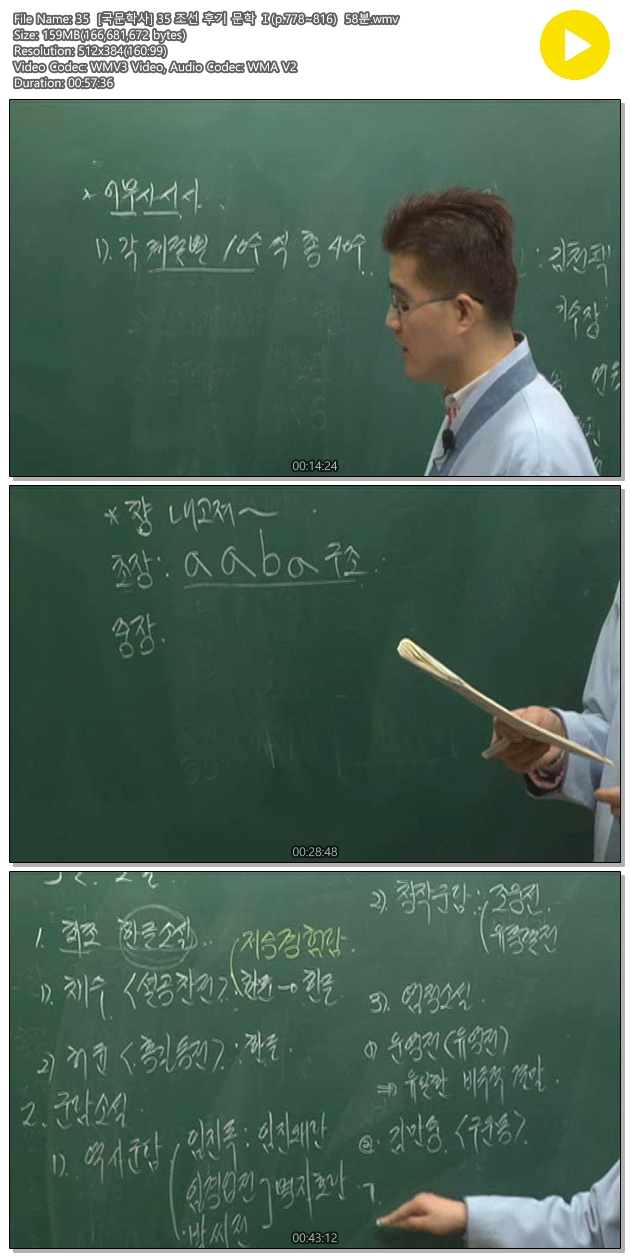 File Name: 35 [국문학사] 35 조선 후기 문학 I(p.778~816) 58분.wmv
Size: 159MB(166,681,672 bytes)
Resolution: 512x384(160:99)
Video Codec: WMV3 Video, Audio Codec: WMA V2
Duration: 00:57:36
* 어부사시사
1). 각 계절별 10수씩 총 40수
: 김천택
김수장
00:14:24
* 창 내고저~
초장: a a b a 구조
중장.
00:28:48
1. 최초 한글소설
저승경험담
1). 채수 <설공찬전>: 한문→한글
2) 허균 <홍길동전>: 한글
2. 군담소설
1). 역사군담
임진록: 임진왜란
임경업전
박씨전
병자호란
2) 창작군담: 조웅전
유충렬전
3). 염정소설
① 운영전(유영전)
⇒ 유일한 비극적 결말
② 김만중 <구운몽>.
ㄱ.
00:43:12